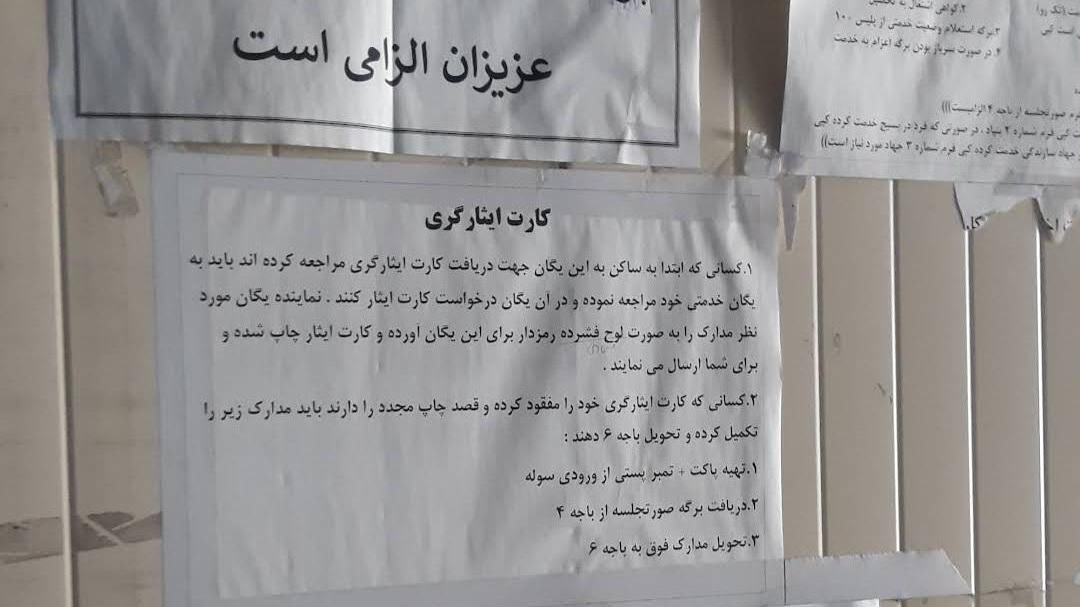 عزیزان الزامی است
۲.گواهی اشتغال به تحصیل
۳.برگه استعلام وضعیت خدمتی از پلیس ۱۰۰
۴. در صورت سرباز بودن برگه اعزام به خدمت
فرم صورتجلسه از باجه ۴ الزامیست)))
کپی فرم شماره ۲ بنیاد ، در صورتی که فرد در بسیج خدمت کرده کپی
جهاد سازندگی خدمت کرده کپی فرم شماره ۳ جهاد مورد نیاز است))
کارت ایثارگری
۱.کسانی که ابتدا به ساکن به این یگان جهت دریافت کارت ایثارگری مراجعه کرده اند باید به
یگان خدمتی خود مراجعه نموده و در آن یگان درخواست کارت ایثار کنند . نماینده یگان مورد
نظر مدارک را به صورت لوح فشرده رمزدار برای این یگان اورده و کارت ایثار چاپ شده و
برای شما ارسال می نمایند .
۲.کسانی که کارت ایثارگری خود را مفقود کرده و قصد چاپ مجدد را دارند باید مدارک زیر را
تکمیل کرده و تحویل باجه ۶ دهند :
۱.تهیه پاکت + تمبر پستی از ورودی سوله
۲.دریافت برگه صورتجلسه از باجه ۴
۳.تحویل مدارک فوق به باجه ۶